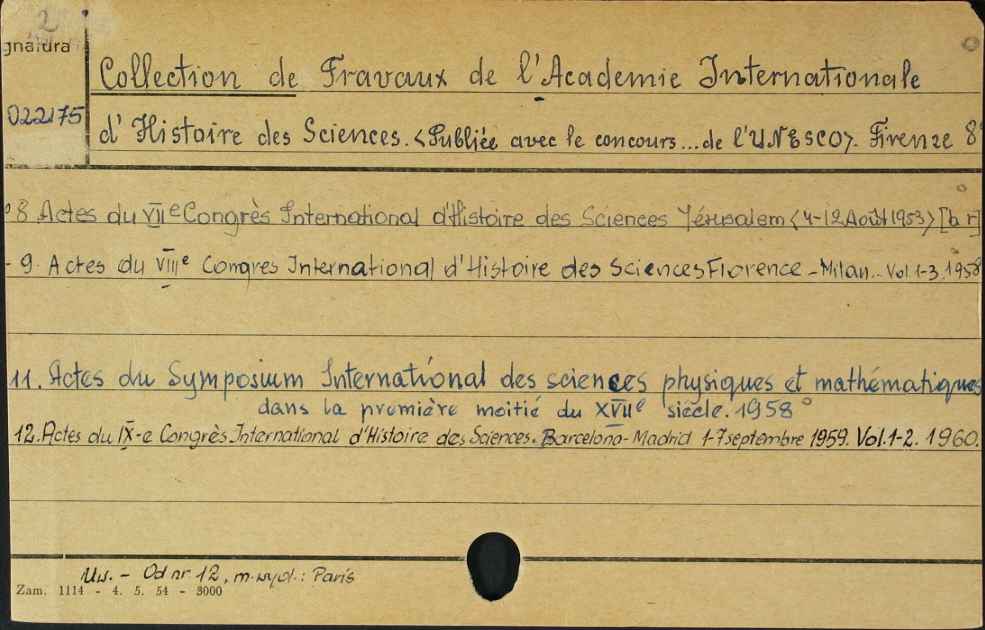 2
gnatura
022175
Collection de Travaux de l'Academie Internationale
d'Histoire des Sciences. <Publiée avec le concours...de l'UNESCO>. Firenze 8°
8 Actes du VIIe Congrès International d'Histoire des Sciences Jérusalem <4-12 Août 1953> [b r]
- 9. Actes du VIIIe Congres International d'Histoire des Sciences Florence - Milan.- Vol. 1-3. 1958
11. Actes du Symposium International des sciences physiques et mathématiques
dans la première moitié du XVIIe siécle. 1958
12. Actes du IX-e Congrès International d'Histoire des Sciences. Barcelona - Madrid 1-7 septembre 1959. Vol. 1-2. 1960.
Uw. - Od nr 12, m. wyd.: Paris
Zam. 1114 - 4. 5. 54 - 3000